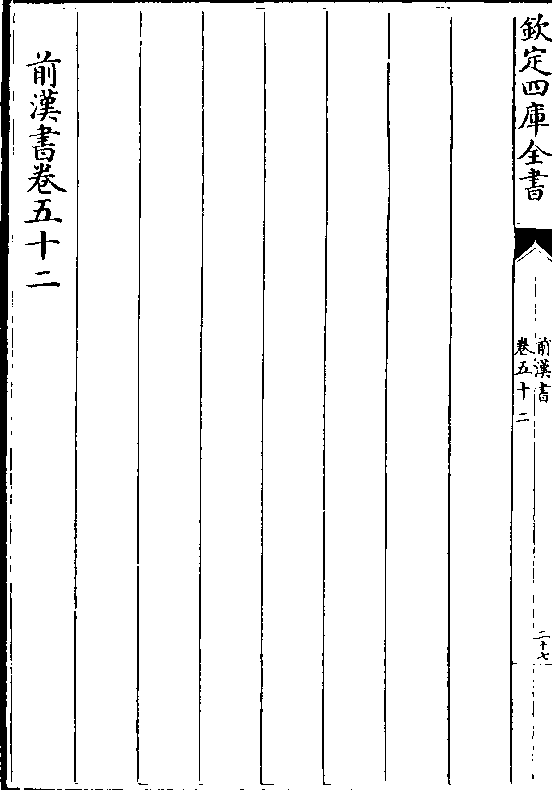 欽定四庫全書
前漢書
卷五十二
二十七
前漢書卷五十二